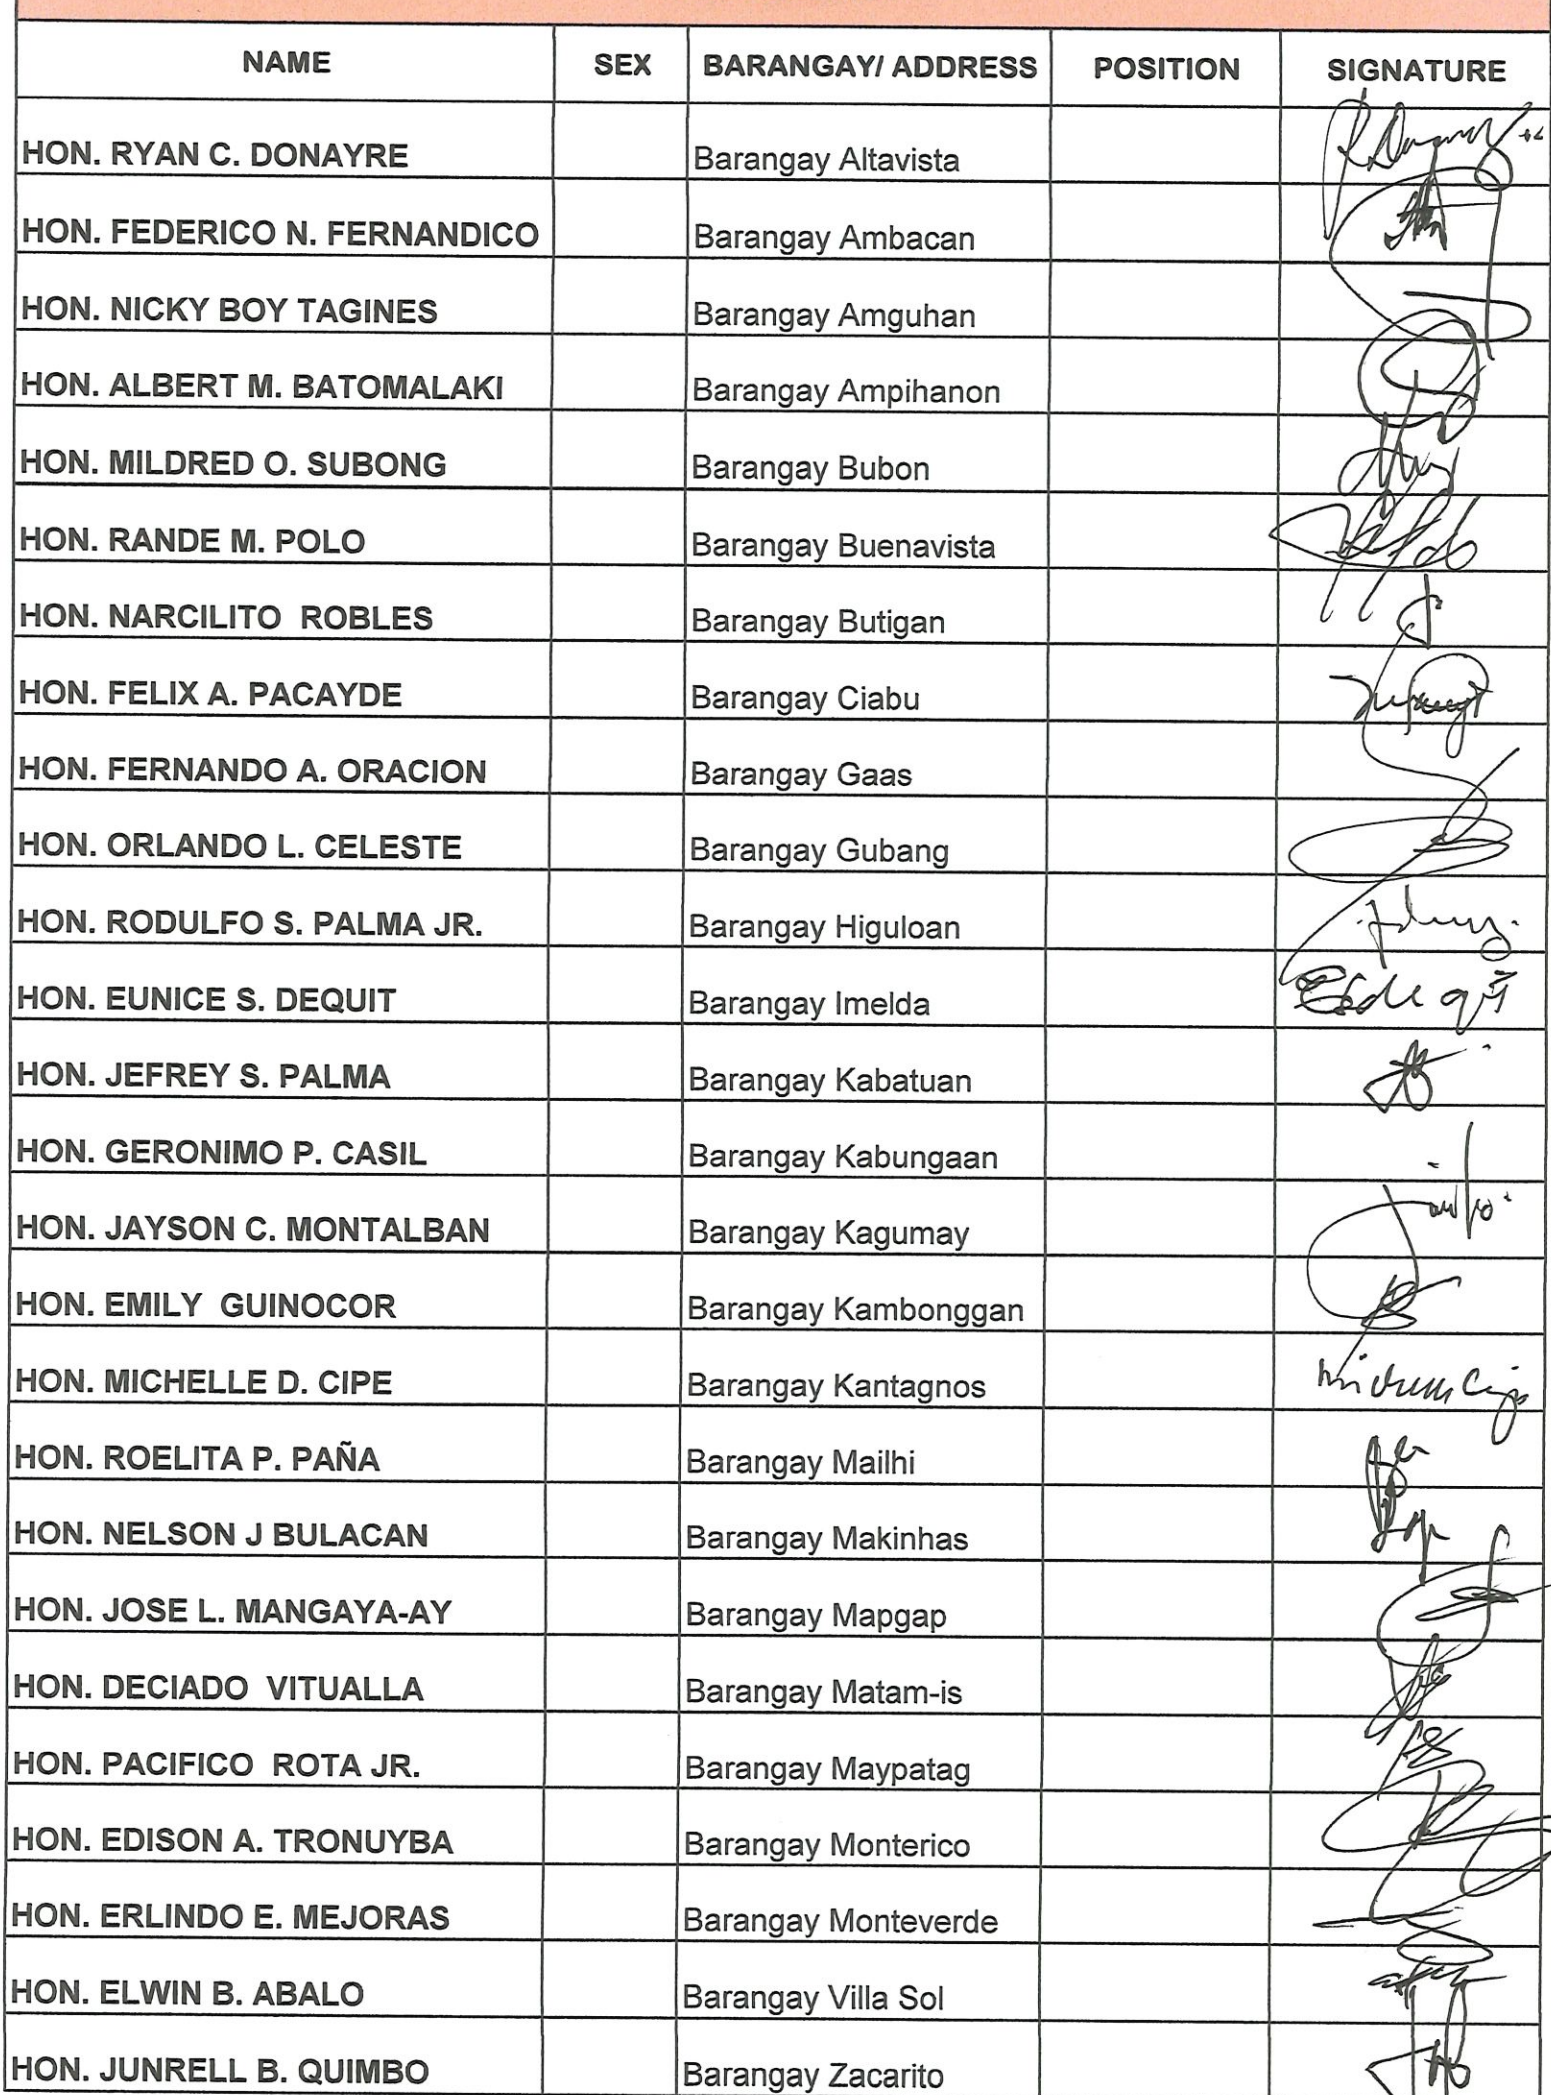 NAME SEX BARANGAY/ ADDRESS POSITION SIGNATURE
HON. RYAN C. DONAYRE Barangay Altavista
HON. FEDERICO N. FERNANDICO Barangay Ambacan
HON. NICKY BOY TAGINES Barangay Amguhan
HON. ALBERT M. BATOMALAKI Barangay Ampihanon
HON. MILDRED O. SUBONG Barangay Bubon
HON. RANDE M. POLO Barangay Buenavista
HON. NARCILITO ROBLES Barangay Butigan
HON. FELIX A. PACAYDE Barangay Ciabu
HON. FERNANDO A. ORACION Barangay Gaas
HON. ORLANDO L. CELESTE Barangay Gubang
HON. RODULFO S. PALMA JR. Barangay Higuloan
HON. EUNICE S. DEQUIT Barangay Imelda
HON. JEFREY S. PALMA Barangay Kabatuan
HON. GERONIMO P. CASIL Barangay Kabungaan
HON. JAYSON C. MONTALBAN Barangay Kagumay
HON. EMILY GUINOCOR Barangay Kambonggan
HON. MICHELLE D. CIPE Barangay Kantagnos
HON. ROELITA P. PAÑA Barangay Mailhi
HON. NELSON J BULACAN Barangay Makinhas
HON. JOSE L. MANGAYA-AY Barangay Mapgap
HON. DECIADO VITUALLA Barangay Matam-is
HON. PACIFICO ROTA JR. Barangay Maypatag
HON. EDISON A. TRONUYBA Barangay Monterico
HON. ERLINDO E. MEJORAS Barangay Monteverde
HON. ELWIN B. ABALO Barangay Villa Sol
HON. JUNRELL B. QUIMBO Barangay Zacarito